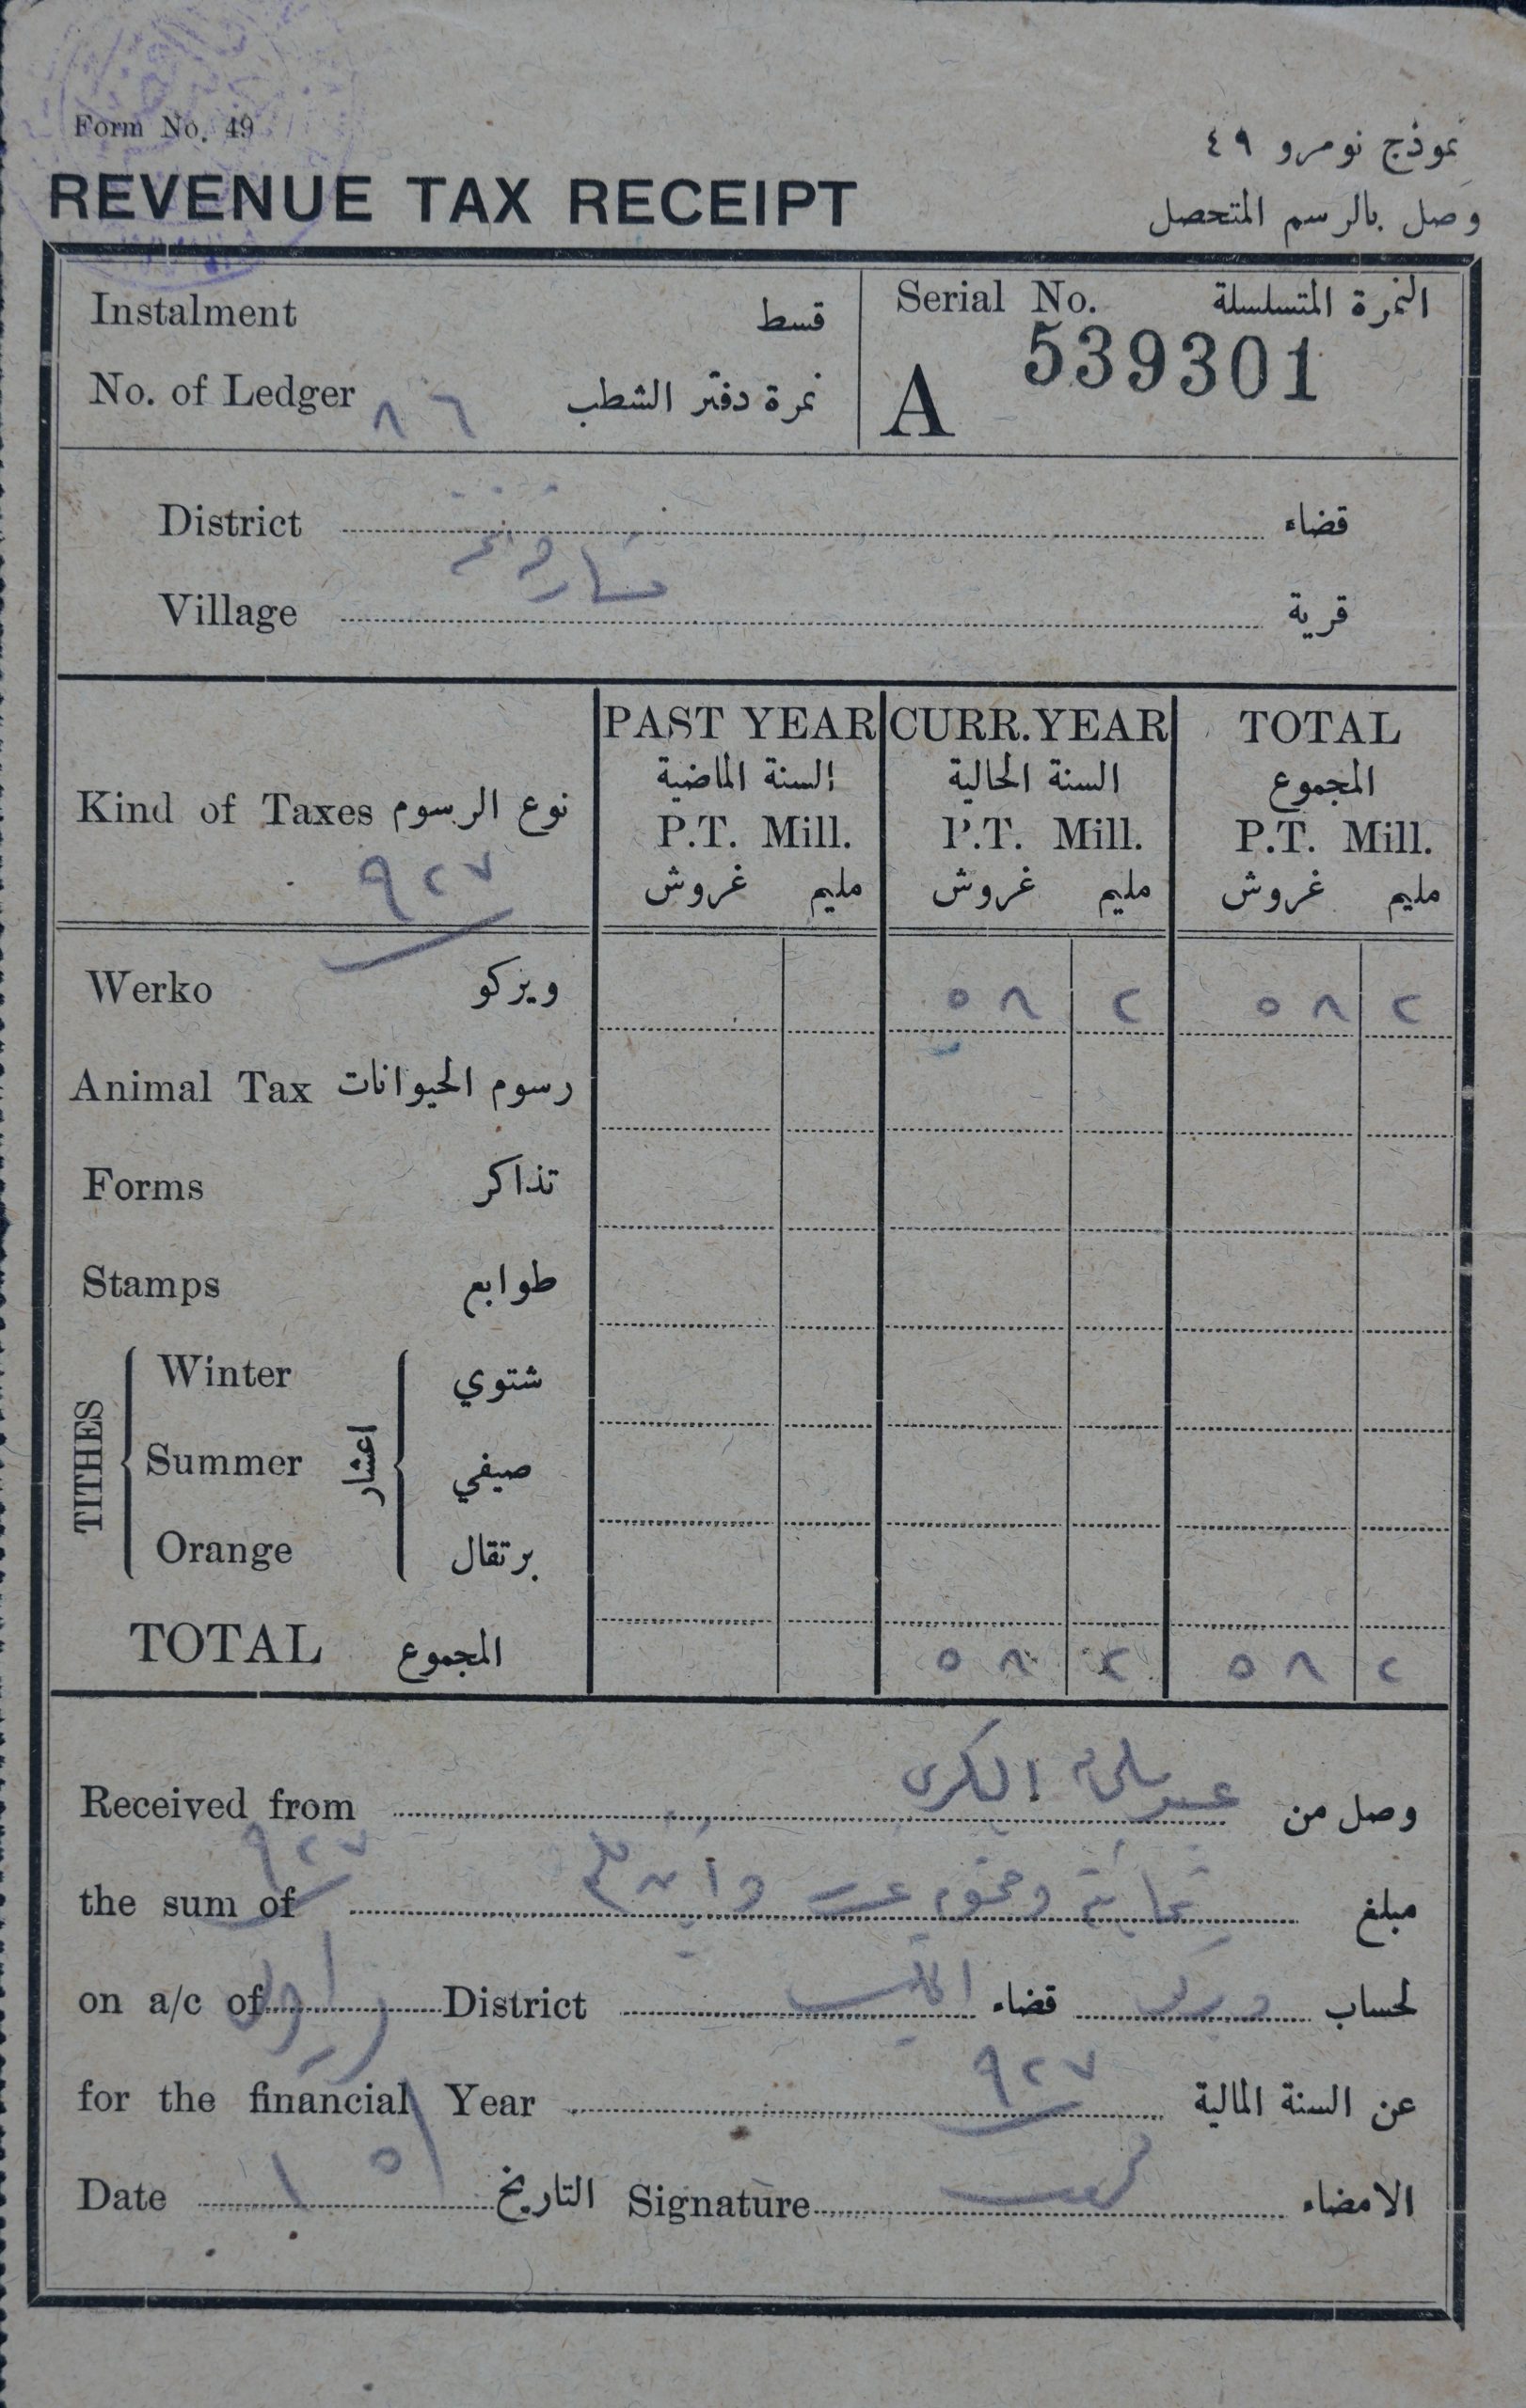 Form No. 49
نموذج نومرو ٤٩
REVENUE TAX RECEIPT
وصل بالرسم المتحصل
Instalment قسط
Serial No. النمرة المتسلسلة
A 539301
No. of Ledger ٨٦ نمرة دفتر الشطب
District قضاء
Village قرية
Kind of Taxes نوع الرسوم
٩٢٧
PAST YEAR CURR. YEAR TOTAL
السنة الماضية السنة الحالية المجموع
P.T. Mill. P.T. Mill. P.T. Mill.
غروش مليم غروش مليم غروش مليم
Werko ويركو ٥٨ ٢ ٥٨ ٢
Animal Tax رسوم الحيوانات
Forms تذاكر
Stamps طوابع
TITHES اعشار
Winter شتوي
Summer صيفي
Orange برتقال
TOTAL المجموع ٥٨ ٢ ٥٨ ٢
Received from وصل من
٩٢٧
the sum of مبلغ
on a/c of District قضاء لحساب
for the financial Year ٩٢٧ عن السنة المالية
Date التاريخ Signature الامضاء